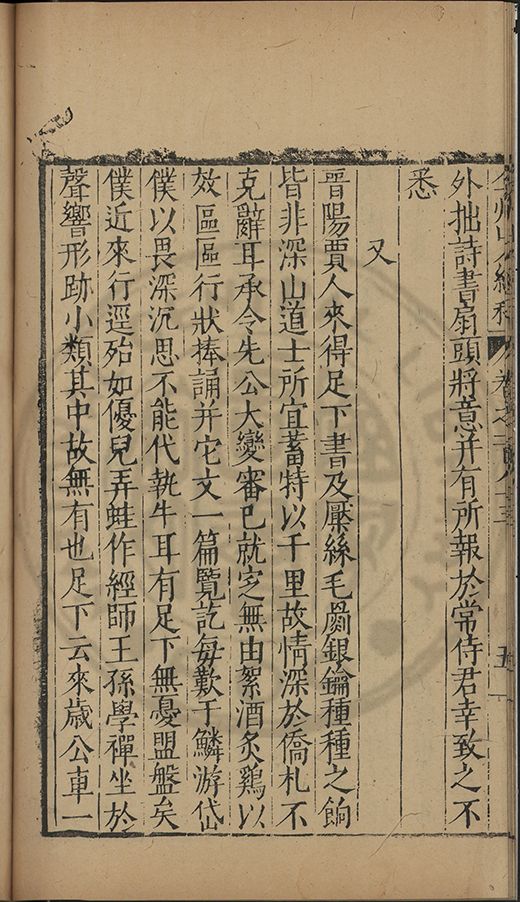 外拙詩書扇頭將意并有所報於常侍君幸致之不
悉
又
晉陽賈人來得足下書及縻絲毛罽銀鑰種種之餉
皆非深山道士所宜蓄特以千里故情深於僑札不
克辭耳承令先公大變審已就窆無由絮酒炙鷄以
效區區行狀捧誦并它文一篇覽訖每歎于鱗游岱
僕以畏深沉思不能代執牛耳有足下無憂盟盤矣
僕近來行逕殆如優兒弄蛙作經師王孫學禪坐於
聲響形跡小類其中故無有也足下云來歲公車一